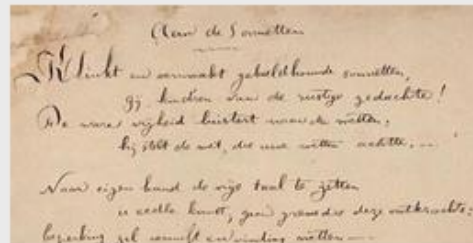 Aan de Sonnetten
Klinkt en vermaakt gebeeldhouwde sonnetten,
Gij kindren van de rustige gedachte!
De ware vrijheid luistert naar de wetten,
hij stelt de wet, die uwe wetten achtte. ..
Naar eigen hand de vrije taal te zetten
is eedle kunst, geen grens die deze ontkrachtte:
beperking zal vernuft en vinding wetten —